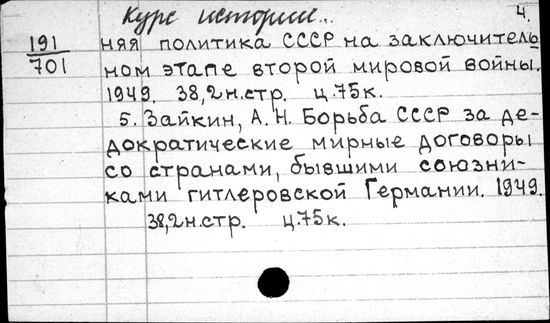 Курс истории... 4.
191
701
няя политика СССР на заключитель
ном этапе второй мировой войны.
1949. 38,2н.стр. ц.75к.
5. Зайкин, А.Н. Борьба СССР за де-
дократические мирные договоры
со странами, бывшими союзни-
ками гитлеровской Германии. 1949.
38,2н.стр. ц.75к.